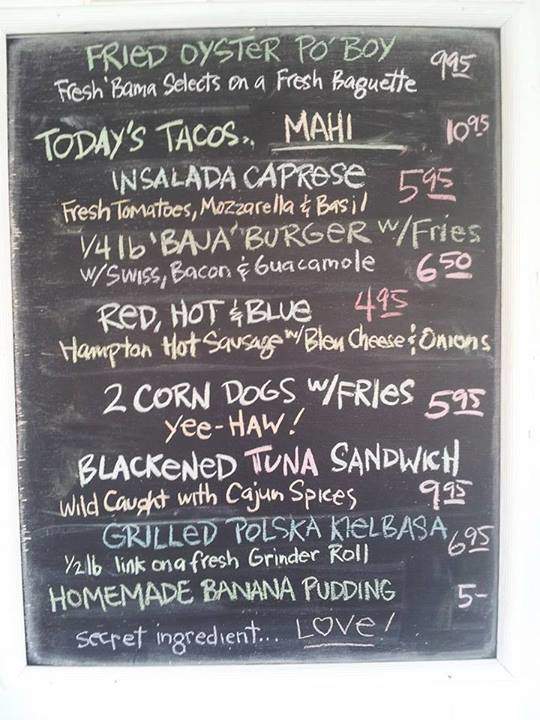 FRIED OYSTER PO'BOY 9 95
Fresh 'Bama Selects on a Fresh Baguette
TODAY'S TACOS.. MAHI 10 95
INSALADA CAPRESE 5 95
Fresh Tomatoes, Mozzarella & Basil
1/4 lb 'BAJA' BURGER w/Fries
w/Swiss, Bacon & Guacamole 6 50
RED, HOT & BLUE 4 95
Hampton Hot Sausage w/Bleu Cheese & Onions
2 CORN DOGS w/FRIES 5 95
Yee-HAW!
BLACKENED TUNA SANDWICH
Wild Caught with Cajun Spices 9 95
GRILLED POLSKA KIELBASA 6 95
1/2 lb link on a fresh Grinder Roll
HOMEMADE BANANA PUDDING 5-
secret ingredient... LOVE!